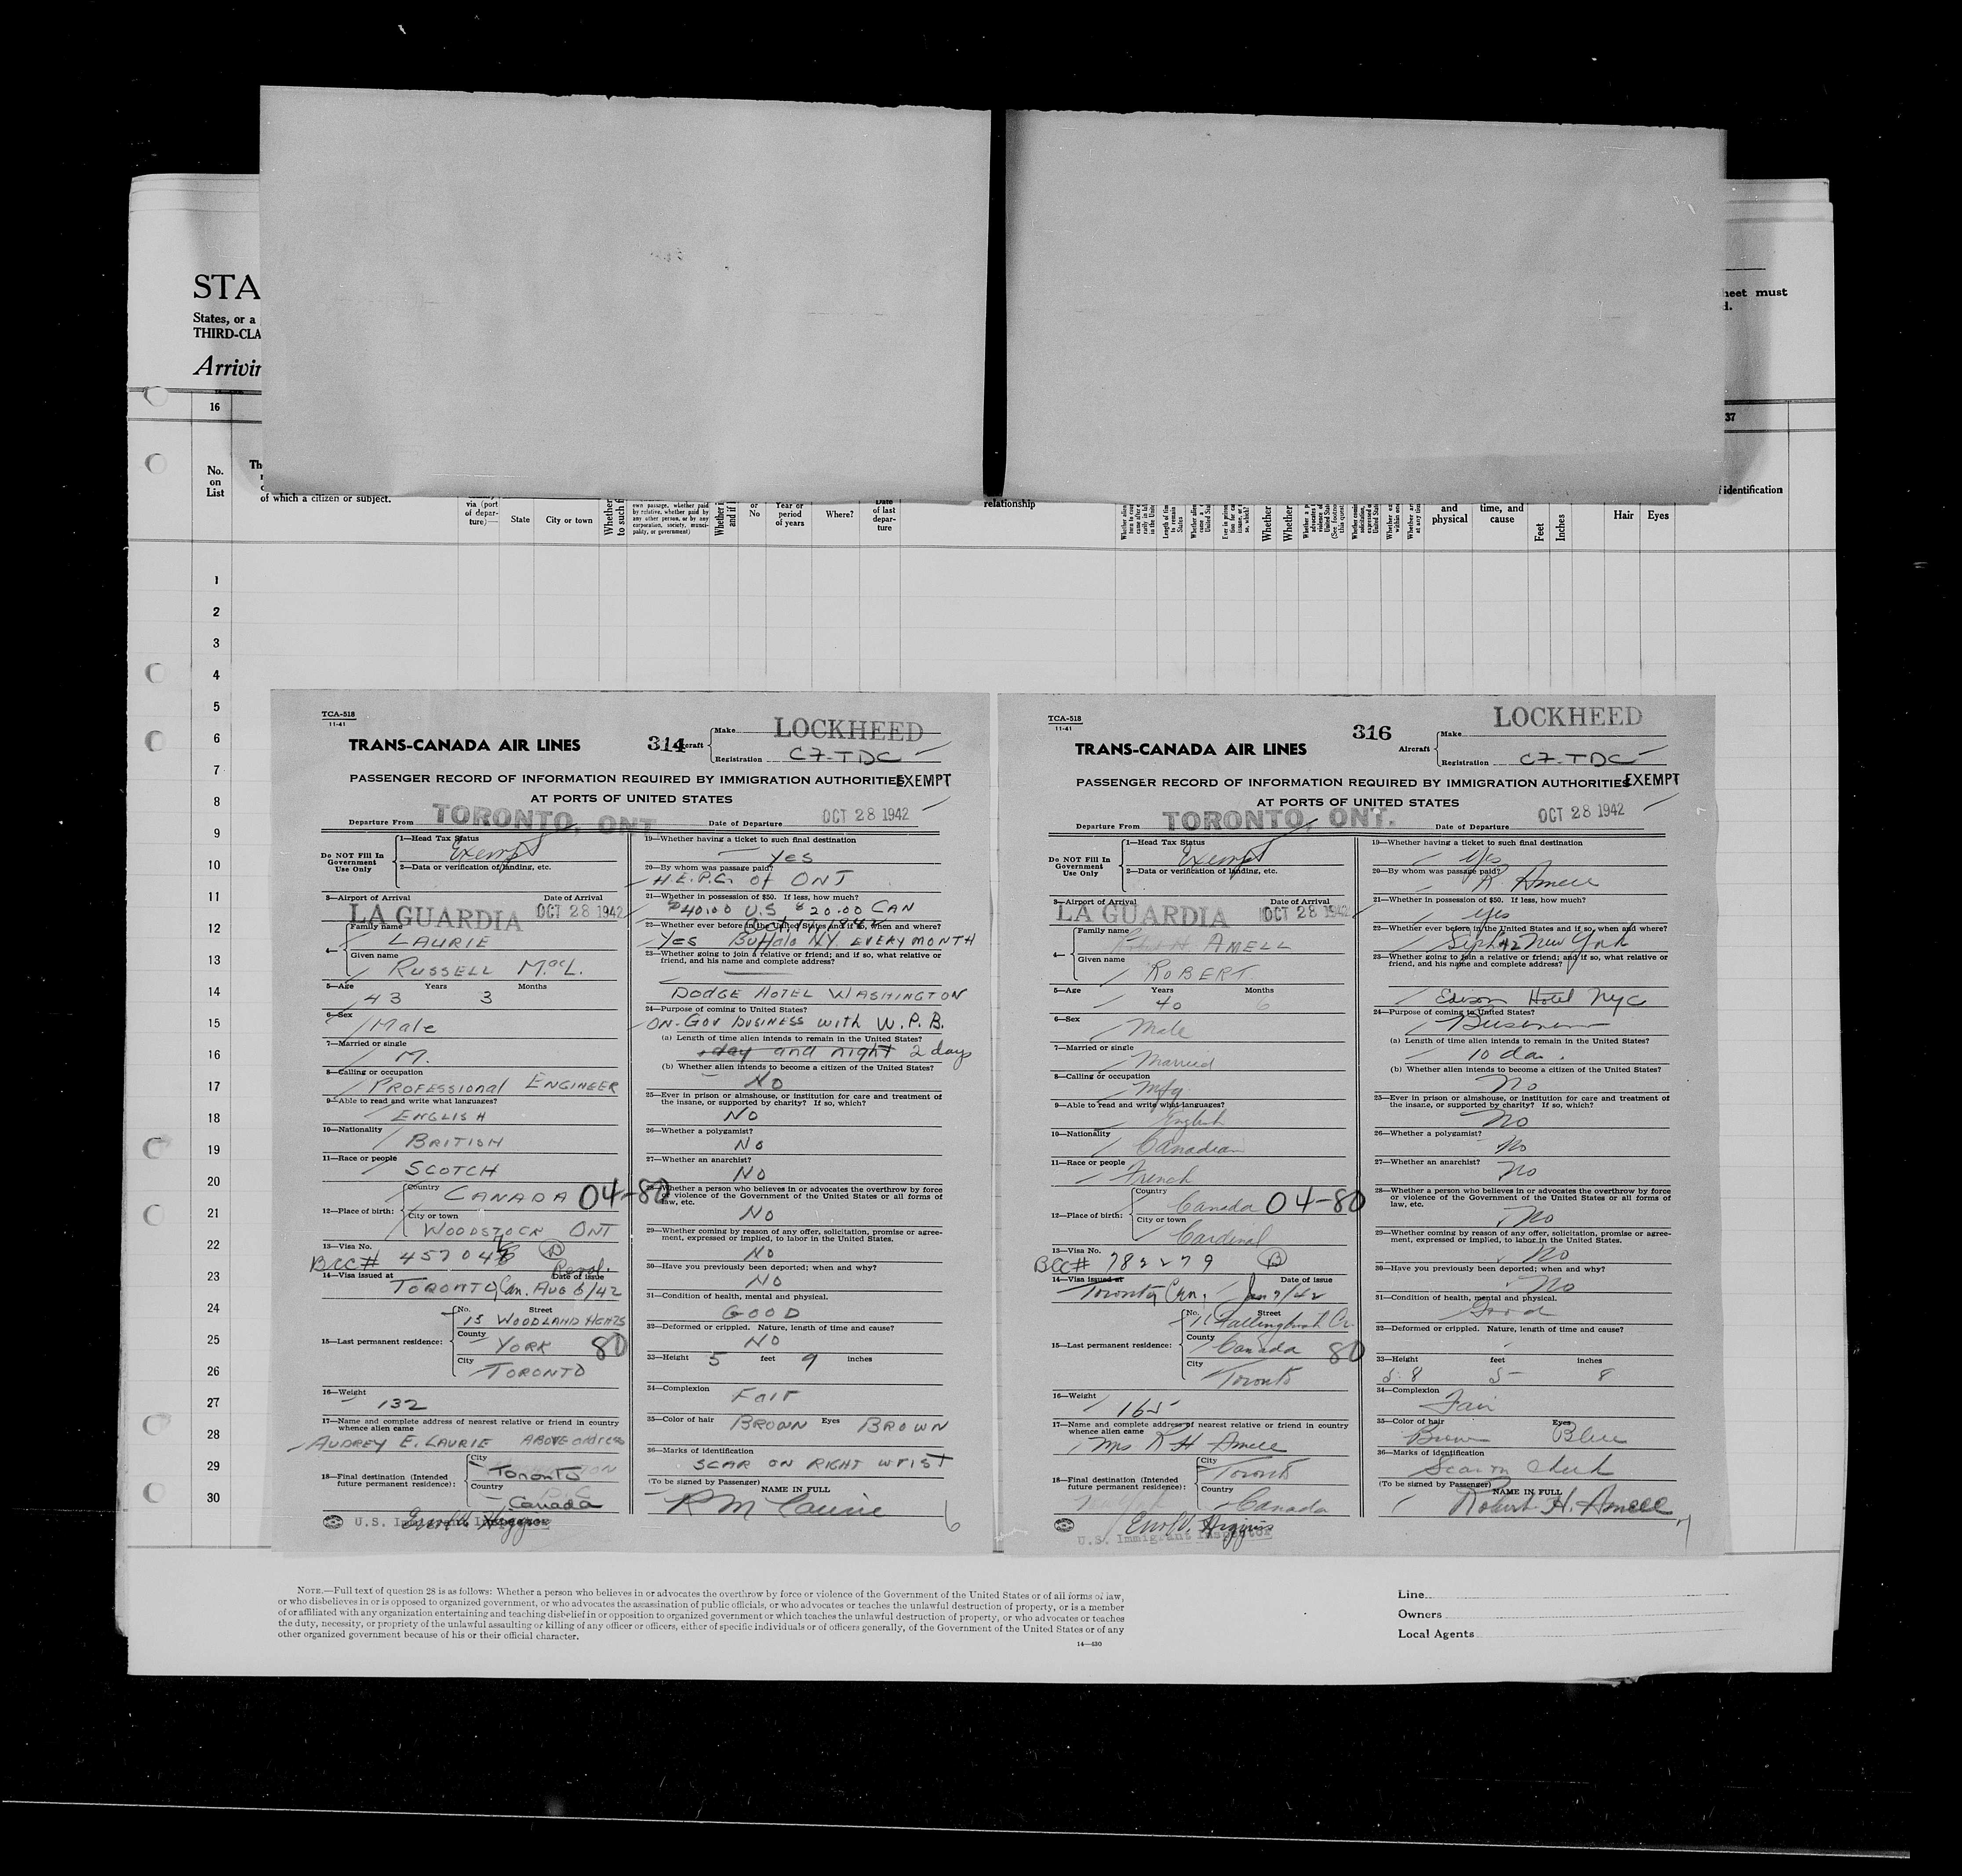 STA
States, or a
THIRD-CLA
Arrivin
heet must
d.
16
37
No.
on
List
Th
of which a citizen or subject.
via (port
of depar-
ture)—
State
City or town
Whether
to such f
own passage, whether paid
by relative, whether paid by
any other person, or by any
corporation, society, munici-
pality, or government)
Whether i
and if
or
No
Year or
period
of years
Where?
Date
of last
depar-
ture
relationship
Whether
Whether
and
physical
time, and
cause
Feet
Inches
Hair
Eyes
f identification
1
2
3
4
5
6
7
8
9
10
11
12
13
14
15
16
17
18
19
20
21
22
23
24
25
26
27
28
29
30
TCA-518
11-41
TRANS-CANADA AIR LINES
314
craft
Make
LOCKHEED
Registration
CF-TDC
PASSENGER RECORD OF INFORMATION REQUIRED BY IMMIGRATION AUTHORITIES
EXEMPT
AT PORTS OF UNITED STATES
Departure From
TORONTO, ONT
Date of Departure
OCT 28 1942
Do NOT Fill In
Government
Use Only
1—Head Tax Status
Exempt
2—Data or verification of landing, etc.
3—Airport of Arrival
Date of Arrival
LA GUARDIA
OCT 28 1942
4—
Family name
LAURIE
Given name
RUSSELL MacL.
5—Age
Years
Months
43
3
6—Sex
Male
7—Married or single
M.
8—Calling or occupation
PROFESSIONAL ENGINEER
9—Able to read and write what languages?
ENGLISH
10—Nationality
BRITISH
11—Race or people
SCOTCH
12—Place of birth:
Country
CANADA
04-80
City or town
WOODSTOCK ONT
13—Visa No.
BCC#
14—Visa issued at
Date of issue
TORONTO, Can. AUG 6/42
15—Last permanent residence:
No.
Street
15 WOODLAND HGHTS
County
YORK
80
City
TORONTO
16—Weight
132
17—Name and complete address of nearest relative or friend in country
whence alien came
AUDREY E. LAURIE ABOVE address
18—Final destination (Intended
future permanent residence):
City
Toronto
Country
Canada
U.S. Immigrant Inspector
19—Whether having a ticket to such final destination
Yes
20—By whom was passage paid?
H.E.P.C. of ONT
21—Whether in possession of $50. If less, how much?
$40.00 U.S $20.00 CAN
22—Whether ever before in the United States and if so, when and where?
YES Buffalo NY. EVERY MONTH
23—Whether going to join a relative or friend; and if so, what relative or
friend, and his name and complete address?
DODGE HOTEL WASHINGTON
24—Purpose of coming to United States?
ON GOV BUSINESS with W.P.B.
(a) Length of time alien intends to remain in the United States?
day and night 2 days
(b) Whether alien intends to become a citizen of the United States?
NO
25—Ever in prison or almshouse, or institution for care and treatment of
the insane, or supported by charity? If so, which?
NO
26—Whether a polygamist?
NO
27—Whether an anarchist?
NO
Whether a person who believes in or advocates the overthrow by force
violence of the Government of the United States or all forms of
law, etc.
NO
29—Whether coming by reason of any offer, solicitation, promise or agree-
ment, expressed or implied, to labor in the United States.
NO
30—Have you previously been deported; when and why?
NO
31—Condition of health, mental and physical.
GOOD
32—Deformed or crippled. Nature, length of time and cause?
NO
33—Height 5 feet 9 inches
34—Complexion
Fair
35—Color of hair BROWN Eyes BROWN
36—Marks of identification
SCAR ON RIGHT WRIST
(To be signed by Passenger)
NAME IN FULL
R M Laurie
6
TCA-518
11-41
TRANS-CANADA AIR LINES
316
Aircraft
Make
LOCKHEED
Registration
CF-TDC
PASSENGER RECORD OF INFORMATION REQUIRED BY IMMIGRATION AUTHORITIES
EXEMPT
AT PORTS OF UNITED STATES
Departure From
TORONTO, ONT.
Date of Departure
OCT 28 1942
Do NOT Fill In
Government
Use Only
1—Head Tax Status
Exempt
2—Data or verification of landing, etc.
3—Airport of Arrival
Date of Arrival
LA GUARDIA
OCT 28 1942
4—
Family name
AMELL
Given name
ROBERT
5—Age
Years
Months
40
6
6—Sex
Male
7—Married or single
Married
8—Calling or occupation
Mfg
9—Able to read and write what languages?
English
10—Nationality
Canadian
11—Race or people
French
12—Place of birth:
Country
Canada
04-80
City or town
Cardinal
13—Visa No.
BCC# 782279
14—Visa issued at
Date of issue
Toronto, Can.
15—Last permanent residence:
No.
Street
County
Canada
80
City
Toronto
16—Weight
165
17—Name and complete address of nearest relative or friend in country
whence alien came
Mrs R H Amell
18—Final destination (Intended
future permanent residence):
City
Toronto
Country
Canada
U.S. Immigrant Inspector
19—Whether having a ticket to such final destination
yes
20—By whom was passage paid?
R. Amell
21—Whether in possession of $50. If less, how much?
yes
22—Whether ever before in the United States and if so, when and where?
Sept 42 New York
23—Whether going to join a relative or friend; and if so, what relative or
friend, and his name and complete address?
Edison Hotel NYC
24—Purpose of coming to United States?
Business
(a) Length of time alien intends to remain in the United States?
10 da.
(b) Whether alien intends to become a citizen of the United States?
No
25—Ever in prison or almshouse, or institution for care and treatment of
the insane, or supported by charity? If so, which?
No
26—Whether a polygamist?
No
27—Whether an anarchist?
No
28—Whether a person who believes in or advocates the overthrow by force
or violence of the Government of the United States or all forms of
law, etc.
No
29—Whether coming by reason of any offer, solicitation, promise or agree-
ment, expressed or implied, to labor in the United States.
No
30—Have you previously been deported; when and why?
No
31—Condition of health, mental and physical.
Good
32—Deformed or crippled. Nature, length of time and cause?
33—Height feet inches
5 8 5 8
34—Complexion
Fair
35—Color of hair
Eyes
Brown Blue
36—Marks of identification
Scar on Cheek
(To be signed by Passenger)
NAME IN FULL
Robert H. Amell
7
NOTE.—Full text of question 28 is as follows: Whether a person who believes in or advocates the overthrow by force or violence of the Government of the United States or of all forms of law,
or who disbelieves in or is opposed to organized government, or who advocates the assassination of public officials, or who advocates or teaches the unlawful destruction of property, or is a member
of or affiliated with any organization entertaining and teaching disbelief in or opposition to organized government or which teaches the unlawful destruction of property, or who advocates or teaches
the duty, necessity, or propriety of the unlawful assaulting or killing of any officer or officers, either of specific individuals or of officers generally, of the Government of the United States or of any
other organized government because of his or their official character.
14—430
Line
Owners
Local Agents